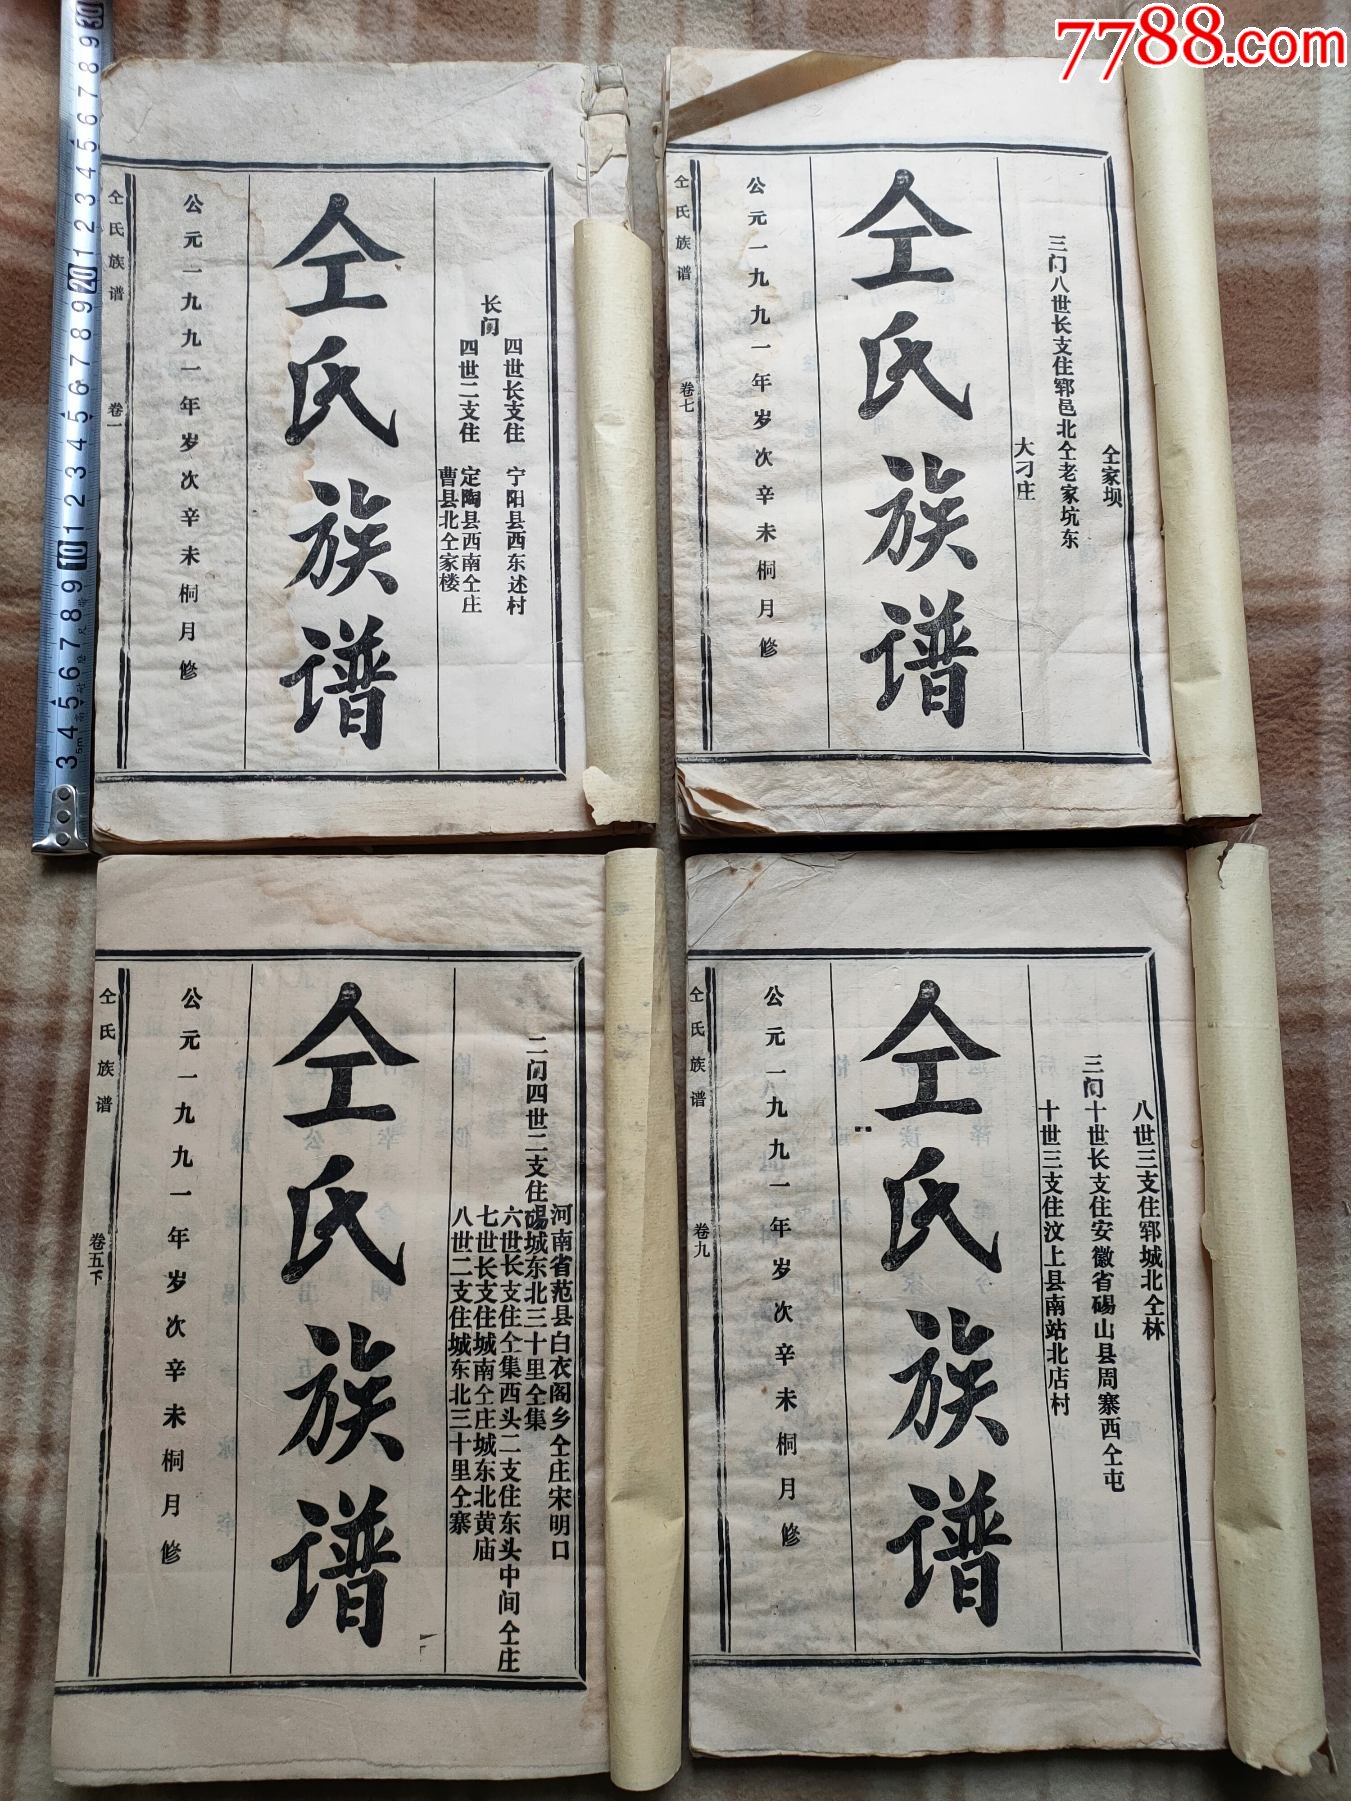 7788.com
长门
四世长支住 宁阳县西东述村
四世二支住 定陶县西南仝庄
曹县北仝家楼
仝氏族谱
公元一九九一年岁次辛未桐月修
仝氏族谱 卷一
仝家坝
三门八世长支住郓邑北仝老家坑东
大刁庄
仝氏族谱
公元一九九一年岁次辛未桐月修
仝氏族谱 卷七
河南省范县白衣阁乡仝庄宋明口
二门四世二支住砀城东北三十里仝集
六世长支住仝集西头二支住东头中间仝庄
七世长支住城南仝庄城东北黄庙
八世二支住城东北三十里仝寨
仝氏族谱
公元一九九一年岁次辛未桐月修
仝氏族谱 卷五下
八世三支住郓城北仝林
三门十世长支住安徽省砀山县周寨西仝屯
十世三支住汶上县南站北店村
仝氏族谱
公元一九九一年岁次辛未桐月修
仝氏族谱 卷九
3 4 5 6 7 8 9 10 1 2 3 4 5 6 7 8 9 20 1 2 3 4 5 6 7 8 9 30
5m